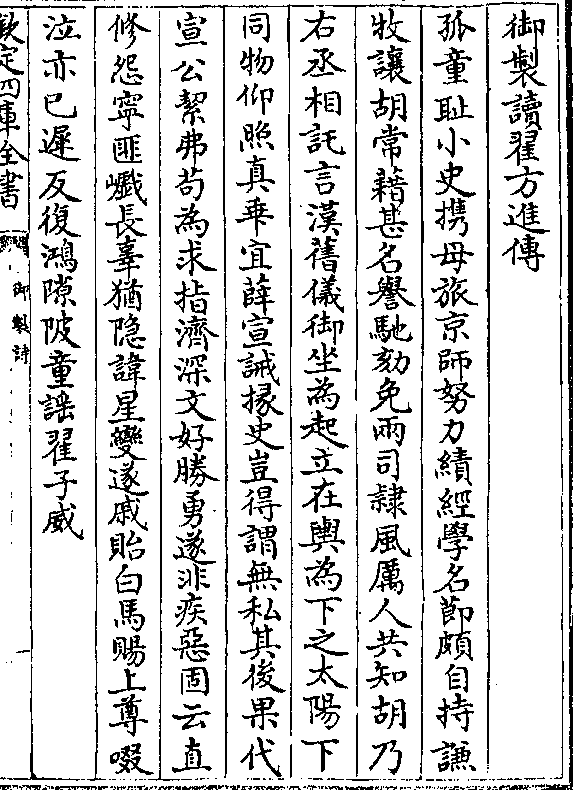 御製讀翟方進傳
孤童恥小史攜母旅京師努力績經學名節頗自持謙
牧讓胡常藉甚名譽馳劾免兩司隸風厲人共知胡乃
右丞相託言漢舊儀御坐為起立在輿為下之太陽下
同物仰照真乖宜薛宣誡掾史豈得謂無私其後果代
宣公絜弗苟為求指濟深文好勝勇遂非疾惡固云直
修怨寧匪巇長辜猶隐諱星變遂戚貽白馬賜上尊啜
泣亦已遲反復鴻隙陂童謡翟子威
欽定四庫全書
御製詩